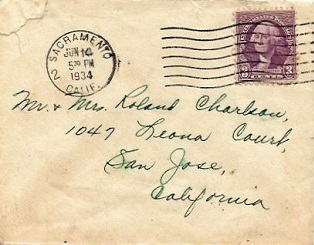 SACRAMENTO
JUN 14
5 30 PM
1934
2
CALIF.
3 3
Mr. & Mrs. Roland Charlson,
1047 Leona Court,
San Jose,
California